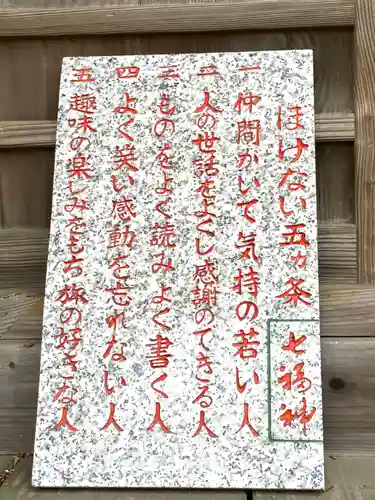 ぼけない五ヵ条
七福神
一 仲間がいて気持の若い人
二 人の世話をよくし感謝のできる人
三 ものをよく読みよく書く人
四 よく笑い感動を忘れない人
五 趣味の楽しみをもち旅の好きな人